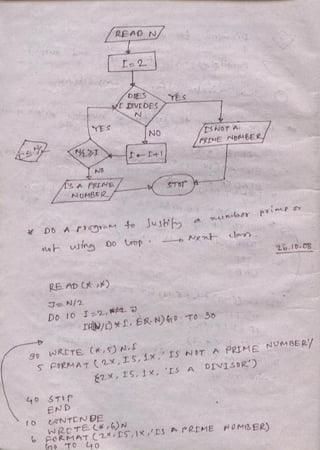 READ N
I=2
DOES
I DIVIDES
N
YES
YES
NO
IS NOT A
PRIME NUMBER
I ← I+1
NO
IS A PRIME
NUMBER
STOP
* DO A program to Justify a number prime or
not using DO Loop. → Next class
26.10.08
READ(*,*)
J=N/2
DO 10 I=2, J
GO TO 30
30 WRITE (*,5)N,I
5 FORMAT (2X,I5,1X,'IS NOT A PRIME NUMBER'/
2X,I5,1X,'IS A DIVISOR')
40 STOP
END
10 CONTINUE
WRITE(*,6)N
6 FORMAT(2X,I5,1X,'IS A PRIME NUMBER)
GO TO 40